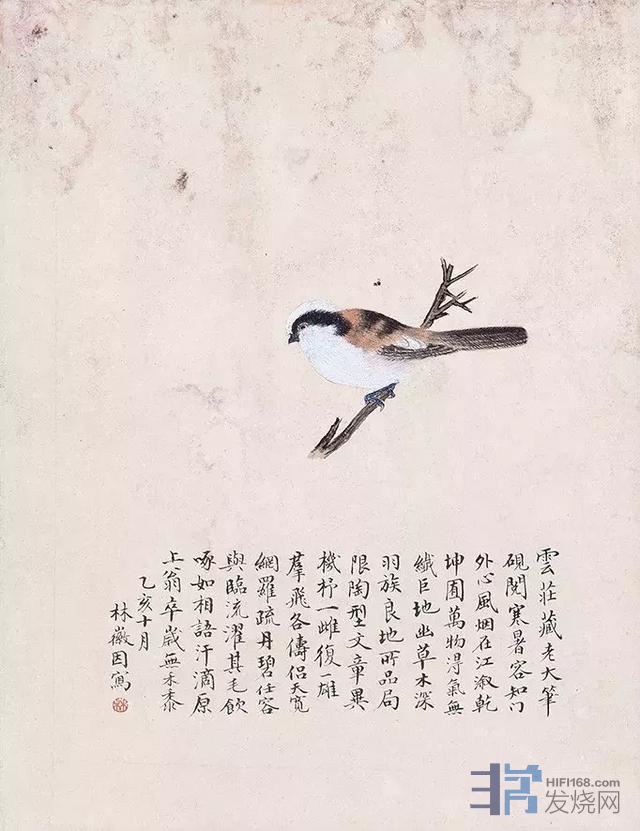 雲莊藏老大筆
硯閱寒暑容知門
外心風烟在江溆乾
坤囿萬物淂氣無
纖巨地幽草木深
羽族良地所品局
限陶型文章異
機杼一雌復一雄
羣飛各儔侣天寬
網羅疏丹碧任容
與臨流濯其毛飲
啄如相語汗滴原
上翁卒歲無禾黍
乙亥十月
林徽因寫
HIFI168.com
发烧网